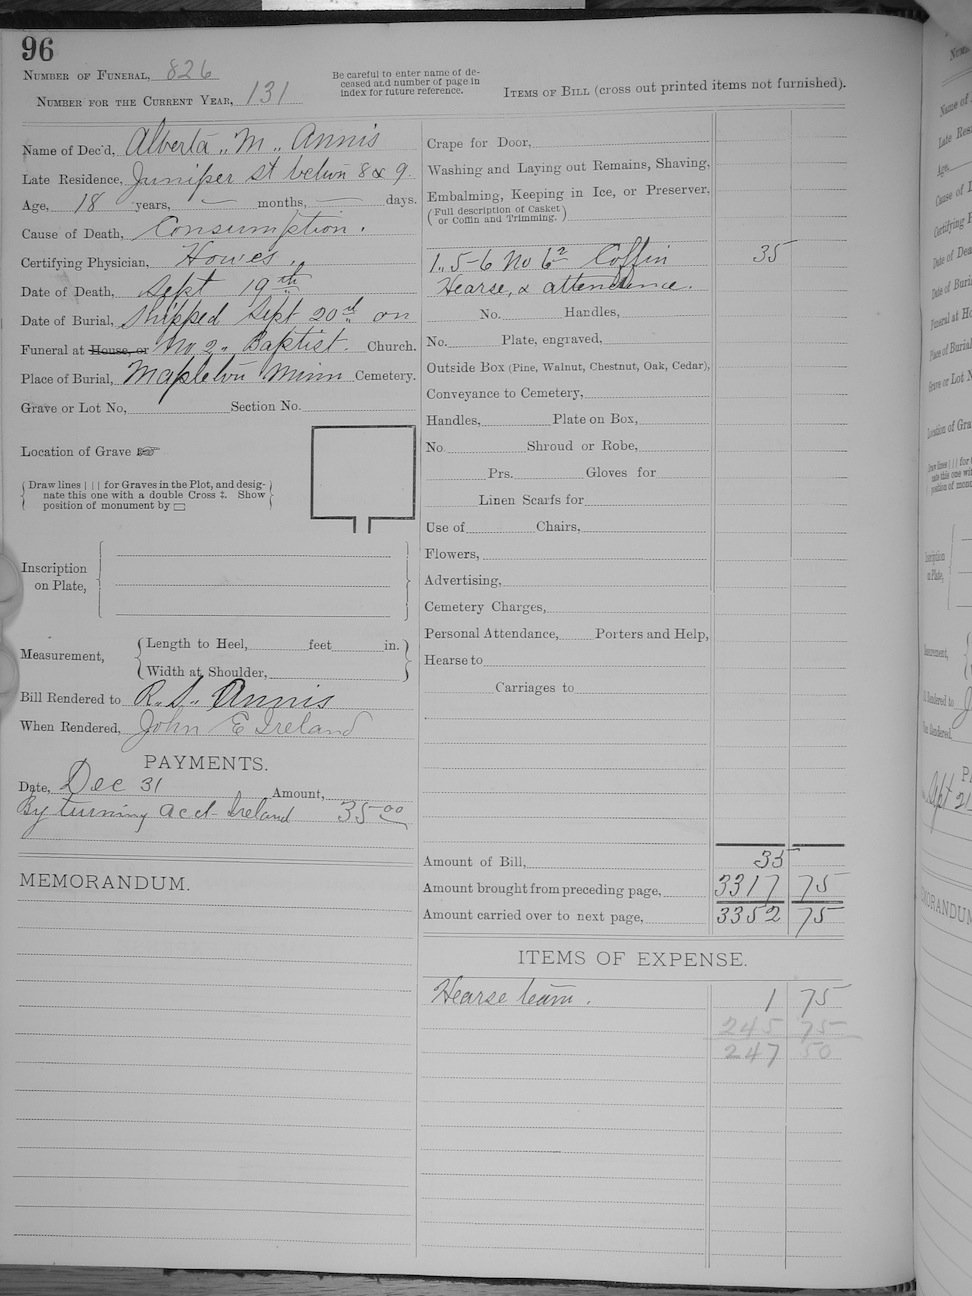 96
Number of Funeral, 826
Number for the Current Year, 131
Be careful to enter name of de-
ceased and number of page in
index for future reference.
Items of Bill (cross out printed items not furnished).
Name of Dec'd, Alberta M. Annis
Late Residence, Juniper St betwn 8 & 9.
Age, 18 years, — months, — days.
Cause of Death, Consumption.
Certifying Physician, Howes.
Date of Death, Sept 19th
Date of Burial, Shipped Sept 20d on
Funeral at House, or No 2. Baptist. Church.
Place of Burial, Mapleton Minn Cemetery.
Grave or Lot No, Section No.
Location of Grave ☞
Draw lines | | | for Graves in the Plot, and desig-
nate this one with a double Cross ‡. Show
position of monument by ▭
Inscription
on Plate,
Measurement,
Length to Heel, feet in.
Width at Shoulder,
Bill Rendered to R. S. Annis
When Rendered, John E Ireland
PAYMENTS.
Date, Dec 31 Amount,
By turning acct Ireland 35 00
MEMORANDUM.
Crape for Door,
Washing and Laying out Remains, Shaving,
Embalming, Keeping in Ice, or Preserver,
(Full description of Casket
or Coffin and Trimming.)
1. 5-6 No 6 2 Coffin 35
Hearse, & attendance.
No. Handles,
No. Plate, engraved,
Outside Box (Pine, Walnut, Chestnut, Oak, Cedar),
Conveyance to Cemetery,
Handles, Plate on Box,
No. Shroud or Robe,
Prs. Gloves for
Linen Scarfs for
Use of Chairs,
Flowers,
Advertising,
Cemetery Charges,
Personal Attendance, Porters and Help,
Hearse to
Carriages to
Amount of Bill, 35
Amount brought from preceding page, 3317 75
Amount carried over to next page, 3352 75
ITEMS OF EXPENSE.
Hearse team. 1 75
245 75
247 50